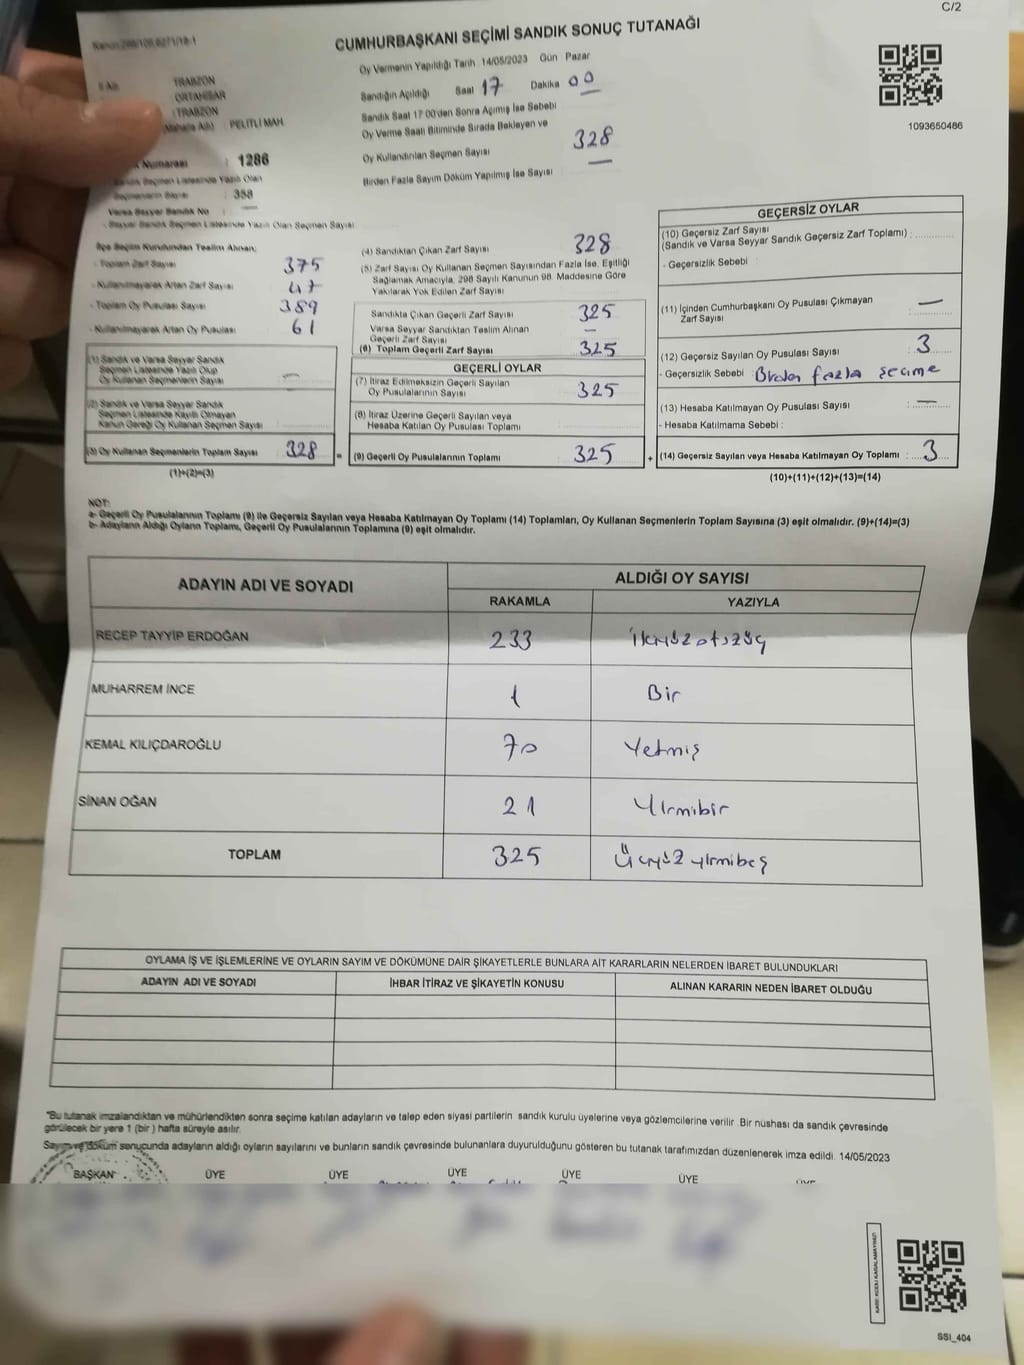 C/2
CUMHURBAŞKANI SEÇİMİ SANDIK SONUÇ TUTANAĞI
Oy Vermenin Yapıldığı Tarih 14/05/2023 Gün Pazar
TRABZON
ORTAHİSAR
TRABZON
PELİTLİ MAH.
Sandığın Açıldığı Saat 17 Dakika 00
Sandık Saat 17:00'den Sonra Açımış İse Sebebi
Oy Verme Saati Bitiminde Sırada Bekleyen ve
Oy Kullandırılan Seçmen Sayısı 328
Birden Fazla Sayım Döküm Yapılmış İse Sayısı —
1093650486
Numarası : 1286
Sandık Seçmen Listesinde Yazılı Olan
Seçmenlerin Sayısı : 358
Varsa Seyyar Sandık No : —
- Seyyar Sandık Seçmen Listesinde Yazılı Olan Seçmen Sayısı
İlçe Seçim Kurulundan Teslim Alınan;
- Toplam Zarf Sayısı 375
- Kullanılmayarak Artan Zarf Sayısı 47
- Toplam Oy Pusulası Sayısı 389
- Kullanılmayarak Artan Oy Pusulası 61
(1) Sandık ve Varsa Seyyar Sandık
Seçmen Listesinde Yazılı Olup
Oy Kullanan Seçmenlerin Sayısı —
(2) Sandık ve Varsa Seyyar Sandık
Seçmen Listesinde Kayıtlı Olmayan
Kanun Gereği Oy Kullanan Seçmen Sayısı
(3) Oy Kullanan Seçmenlerin Toplam Sayısı 328 =
(1)+(2)=(3)
(4) Sandıktan Çıkan Zarf Sayısı 328
(5) Zarf Sayısı Oy Kullanan Seçmen Sayısından Fazla İse, Eşitliği
Sağlamak Amacıyla, 298 Sayılı Kanunun 98. Maddesine Göre
Yakılarak Yok Edilen Zarf Sayısı
Sandıkta Çıkan Geçerli Zarf Sayısı 325
Varsa Seyyar Sandıktan Teslim Alınan
Geçerli Zarf Sayısı —
(6) Toplam Geçerli Zarf Sayısı 325
GEÇERLİ OYLAR
(7) İtiraz Edilmeksizin Geçerli Sayılan
Oy Pusulalarının Sayısı 325
(8) İtiraz Üzerine Geçerli Sayılan veya
Hesaba Katılan Oy Pusulası Toplamı
(9) Geçerli Oy Pusulalarının Toplamı 325 +
GEÇERSİZ OYLAR
(10) Geçersiz Zarf Sayısı
(Sandık ve Varsa Seyyar Sandık Geçersiz Zarf Toplamı) :
- Geçersizlik Sebebi :
(11) İçinden Cumhurbaşkanı Oy Pusulası Çıkmayan
Zarf Sayısı : —
(12) Geçersiz Sayılan Oy Pusulası Sayısı : 3
- Geçersizlik Sebebi : Birden fazla seçime
(13) Hesaba Katılmayan Oy Pusulası Sayısı : —
- Hesaba Katılmama Sebebi :
(14) Geçersiz Sayılan veya Hesaba Katılmayan Oy Toplamı : 3
(10)+(11)+(12)+(13)=(14)
NOT:
a- Geçerli Oy Pusulalarının Toplamı (9) ile Geçersiz Sayılan veya Hesaba Katılmayan Oy Toplamı (14) Toplamları, Oy Kullanan Seçmenlerin Toplam Sayısına (3) eşit olmalıdır. (9)+(14)=(3)
b- Adayların Aldığı Oyların Toplamı, Geçerli Oy Pusulalarının Toplamına (9) eşit olmalıdır.
ADAYIN ADI VE SOYADI
ALDIĞI OY SAYISI
RAKAMLA YAZIYLA
RECEP TAYYİP ERDOĞAN 233 ikiyüzotuzüç
MUHARREM İNCE 1 Bir
KEMAL KILIÇDAROĞLU 70 Yetmiş
SİNAN OĞAN 21 Yirmibir
TOPLAM 325 Üçyüzyirmibeş
OYLAMA İŞ VE İŞLEMLERİNE VE OYLARIN SAYIM VE DÖKÜMÜNE DAİR ŞİKAYETLERLE BUNLARA AİT KARARLARIN NELERDEN İBARET BULUNDUKLARI
ADAYIN ADI VE SOYADI İHBAR İTİRAZ VE ŞİKAYETİN KONUSU ALINAN KARARIN NEDEN İBARET OLDUĞU
"Bu tutanak imzalandıktan ve mühürlendikten sonra seçime katılan adayların ve talep eden siyasi partilerin sandık kurulu üyelerine veya gözlemcilerine verilir. Bir nüshası da sandık çevresinde
görülecek bir yere 1 (bir ) hafta süreyle asılır.
Sayım ve döküm sonucunda adayların aldığı oyların sayılarını ve bunların sandık çevresinde bulunanlara duyurulduğunu gösteren bu tutanak tarafımızdan düzenlenerek imza edildi. 14/05/2023
BAŞKAN ÜYE ÜYE ÜYE ÜYE ÜYE ÜYE
SSI_404